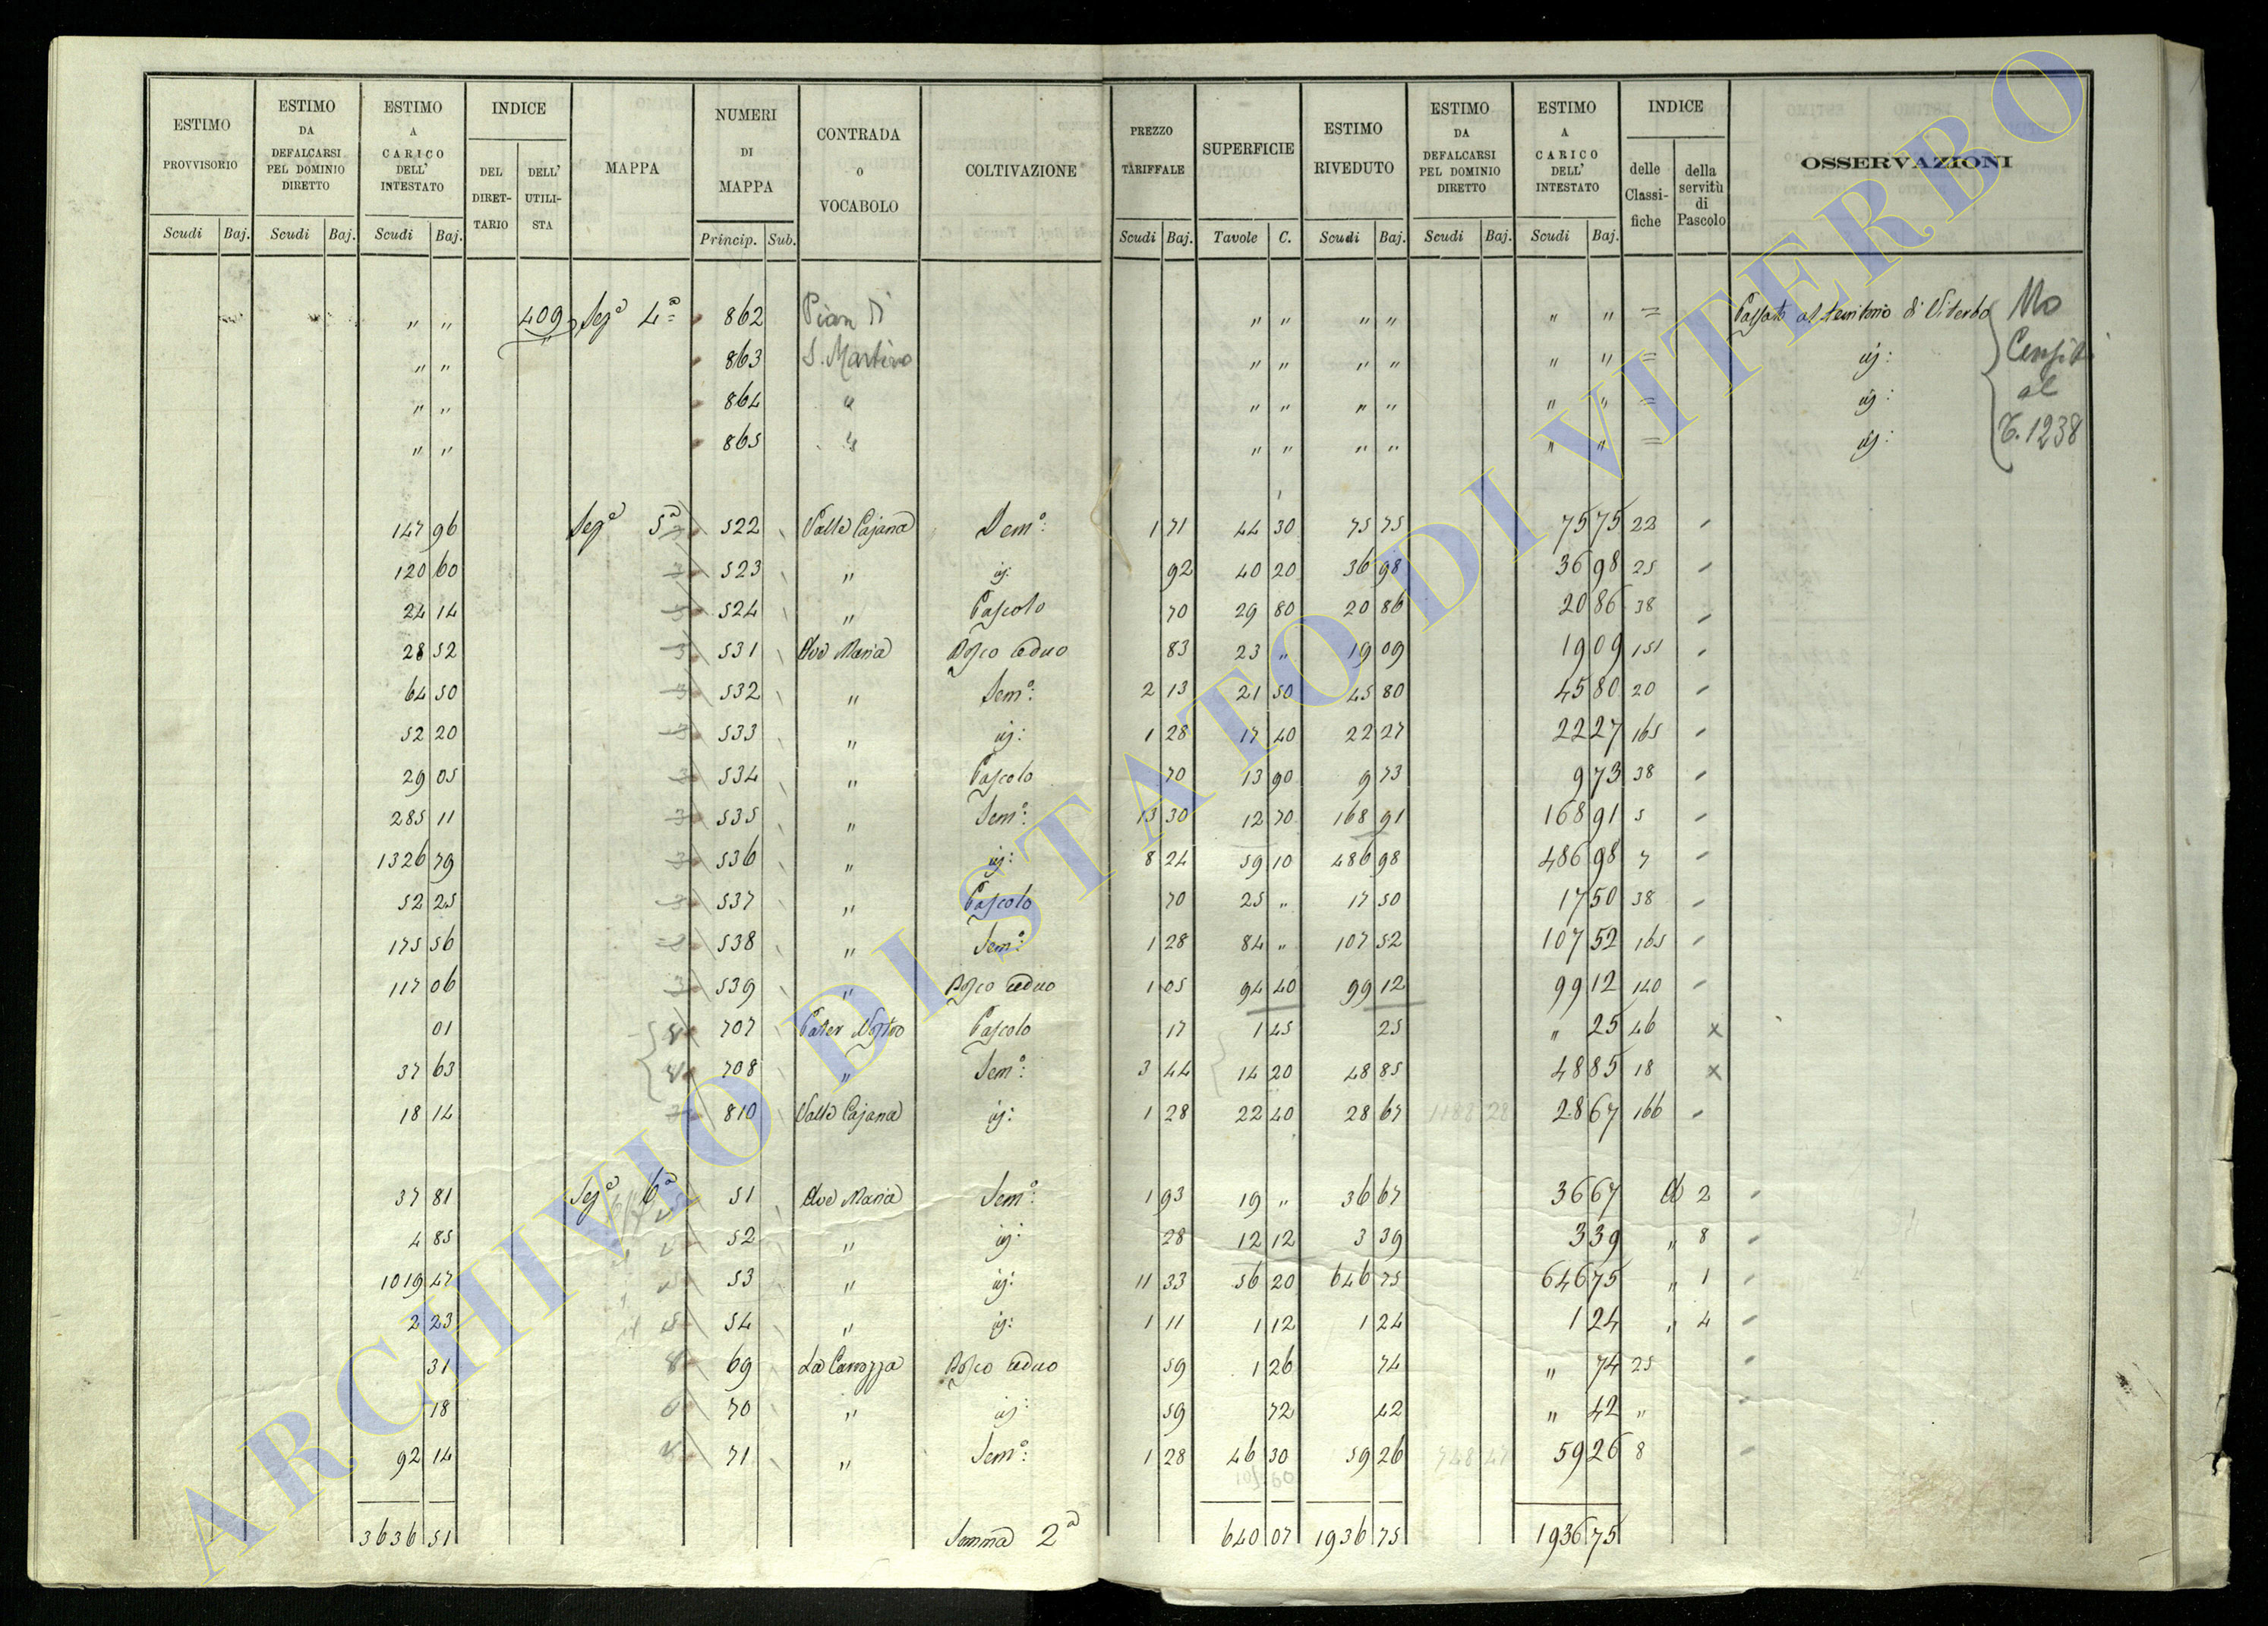 ESTIMO PROVVISORIO Scudi Baj. ESTIMO DA DEFALCARSI PEL DOMINIO DIRETTO Scudi Baj. ESTIMO A CARICO DELL' INTESTATO Scudi Baj. INDICE DEL DIRETTARIO DELL' UTILISTA MAPPA NUMERI DI MAPPA Princip. Sub. CONTRADA O VOCABOLO COLTIVAZIONE PREZZO TARIFFALE Scudi Baj. SUPERFICIE Tavole C. ESTIMO RIVEDUTO Scudi Baj. ESTIMO DA DEFALCARSI PEL DOMINIO DIRETTO Scudi Baj. ESTIMO A CARICO DELL' INTESTATO Scudi Baj. INDICE delle Classifiche della servitù di Pascolo OSSERVAZIONI
" " 409 Seg.a 4.a 862 Pian di " " " " " " = Passato al territorio di Viterbo No
" " 863 S. Martino " " " " " " = id: Censiti
" " 864 " " " " " " " = id: al
" " 865 " " " " " " " = id: C. 1238
147 96 Seg.a 5.a 522 Valle Cajana Sem.o: 1 71 44 30 75 75 75 75 22
120 60 523 " id: 92 40 20 36 98 36 98 25
24 14 524 " Pascolo 70 29 80 20 86 20 86 38
28 52 531 Ave Maria Bosco ceduo 83 23 " 19 09 19 09 151
64 50 532 " Sem.o: 2 13 21 50 45 80 45 80 20
52 20 533 " id: 1 28 17 40 22 27 22 27 165
29 05 534 " Pascolo 70 13 90 9 73 9 73 38
285 11 535 " Sem.o: 13 30 12 70 168 91 168 91 5
1326 79 536 " id: 8 24 59 10 486 98 486 98 7
52 25 537 " Pascolo 70 25 " 17 50 17 50 38
175 56 538 " Sem.o: 1 28 84 " 107 52 107 52 165
117 06 539 " Bosco ceduo 1 05 94 40 99 12 99 12 140
01 707 Pater Nostro Pascolo 17 1 45 25 " 25 46 x
37 63 708 " Sem.o: 3 44 14 20 48 85 48 85 18 x
18 14 810 Valle Cajana id: 1 28 22 40 28 67 1188 28 28 67 166
37 81 Seg.a 6.a 51 Ave Maria Sem.o: 1 93 19 " 36 67 36 67 2
4 85 52 " id: 28 12 12 3 39 3 39 " 8
1019 47 53 " id: 11 33 56 20 646 75 646 75 " 1
2 23 54 " id: 1 11 1 12 1 24 1 24 " 4
31 69 La Carrozza Bosco ceduo 59 1 26 74 " 74 25
18 70 " id: 59 72 42 " 42 "
92 14 71 " Sem.o: 1 28 46 30 59 26 748 47 59 26 8
3636 51 Somma 2.a 640 07 1936 75 1936 75
ARCHIVIO DI STATO DI VITERBO